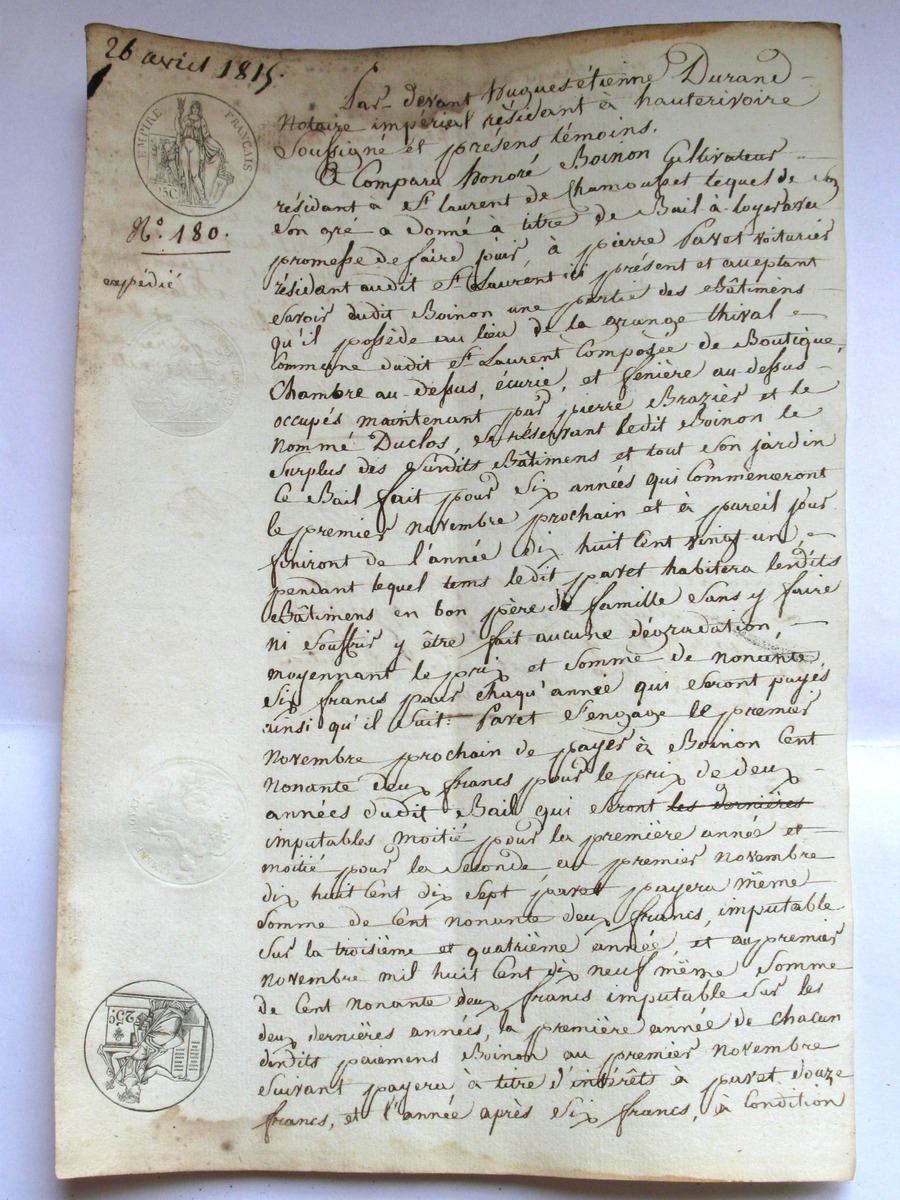 26 avril 1815.
EMPIRE FRANÇAIS
25C
Nº. 180.
expédié
Par-devant hugues étienne Durand
Notaire impérial résidant à hauterivoire
Soussigné et présens témoins.
A Comparu honoré Boinon Cultivateur
résidant à St. laurent de Chamousset lequel de
Son gré a donné à titre de Bail-à-loyer avec
promesse de faire jouir, à pierre Pavet voiturier
résidant audit St. Laurent ici présent et acceptant
Savoir dudit Boinon une partie des Bâtimens
qu'il possède au lieu de la grange thival
Commune dudit St. Laurent Composée de Boutique,
Chambre au-dessus, écurie, et fenière au-dessus
occupés maintenant par pierre Brazier et le
nommé Duclos, Se réservant ledit Boinon le
Surplus des Susdits Bâtimens et tout Son jardin
Ce Bail fait pour Six années qui Commenceront
le premier novembre prochain et à pareil jour
finiront de l'année dix huit Cent vingt un,
pendant lequel tems ledit pavet habitera lesdits
Bâtimens en bon père de famille Sans y faire
ni Souffrir y être fait aucune dégradation,
moyennant le prix et Somme de nonante
Six francs pour chaqu'année qui Seront payés
ainsi qu'il Suit: Pavet S'engage le premier
Novembre prochain de payer à Boinon Cent
nonante deux francs pour le prix de deux
années dudit Bail qui Seront les dernières
imputables moitié pour la première année et
moitié pour la Seconde au premier novembre
dix huit Cent dix Sept pavet payera même
Somme de Cent nonante deux francs, imputable
Sur la troisième et quatrième année, et au premier
novembre mil huit Cent dix neuf même Somme
de Cent nonante deux francs imputable Sur les
deux dernières années, la première année de chacun
desdits paiemens Boinon au premier novembre
Suivant payera à titre d'intérêts à pavet douze
francs, et l'année après Six francs, à Condition
25C.